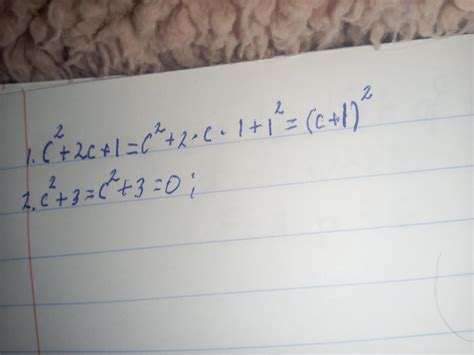 1. c²+2c+1=c²+2·c·1+1²=(c+1)²
2. c²+3=c²+3=0;